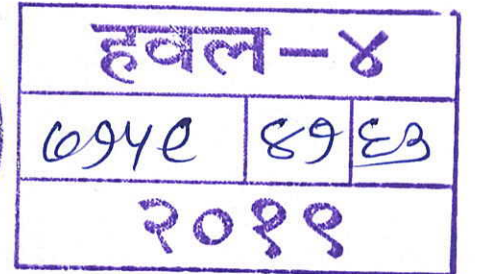 हवल-४
७१५९ ४१ ६३
२०१९